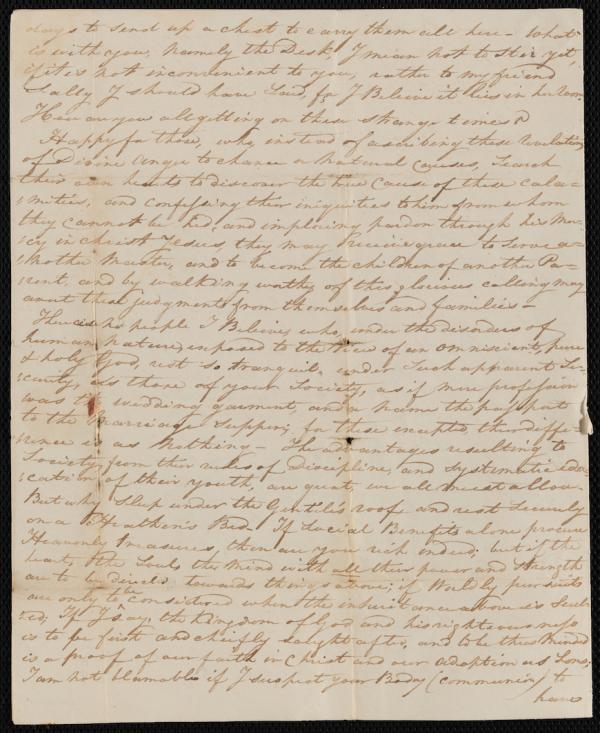 days to send up a chest to carry them all here - What
is with you, namely the Desk, I mean not to stir yet,
if it is not inconvenient to you, rather to my friend
Sally I should have said, for I Believe it lies in her room
How are you all getting on these strange times?
Happy for those, who, instead of ascribing these
of Divine anger to chance or Natural causes, Search
their own hearts to discover the true cause of these cala-
-mities, and confessing their iniquities to him from whom
they cannot be hid, and imploring pardon through his Mer-
-cy in Christ Jesus, they may receive grace to serve a-
-nother Master, and to become the children of another Pa-
-rent, and by walking worthy of this glorious calling may
avert these judgments from themselves and families -
There is no people I Believe, who, under the disorders of
human nature, exposed to the View of an omniscient, pure
& holy God, rest so tranquil under such apparent Se-
-curity, as those of your Society, as if mere profession
was the wedding garment, and a name the passport
to the Marriage Supper; for these excepted, the diffe-
-rence is as Nothing - The advantages resulting to
Society from their rules of Discipline, and systematic edu-
-cation of their youth, are great we all must allow
But why sleep under the Gentile's roof and rest securely
on a Heathen's Bed. If Social Benefits alone procure
Heavenly treasures, then are you rich indeed; but if the
heart, the Soul, the Mind with all their power and Strength
are to be directed towards things above; if Worldly pursuits
are only to be considered when the inheritance above is Secu-
-red; If I say, the kingdom of God and his righteousness
is to be first and chiefly sought after, and to be thus minded
is a proof of our faith in Christ and our adoption as Sons;
I am not blamable if I suspect your Body (communion) to
have